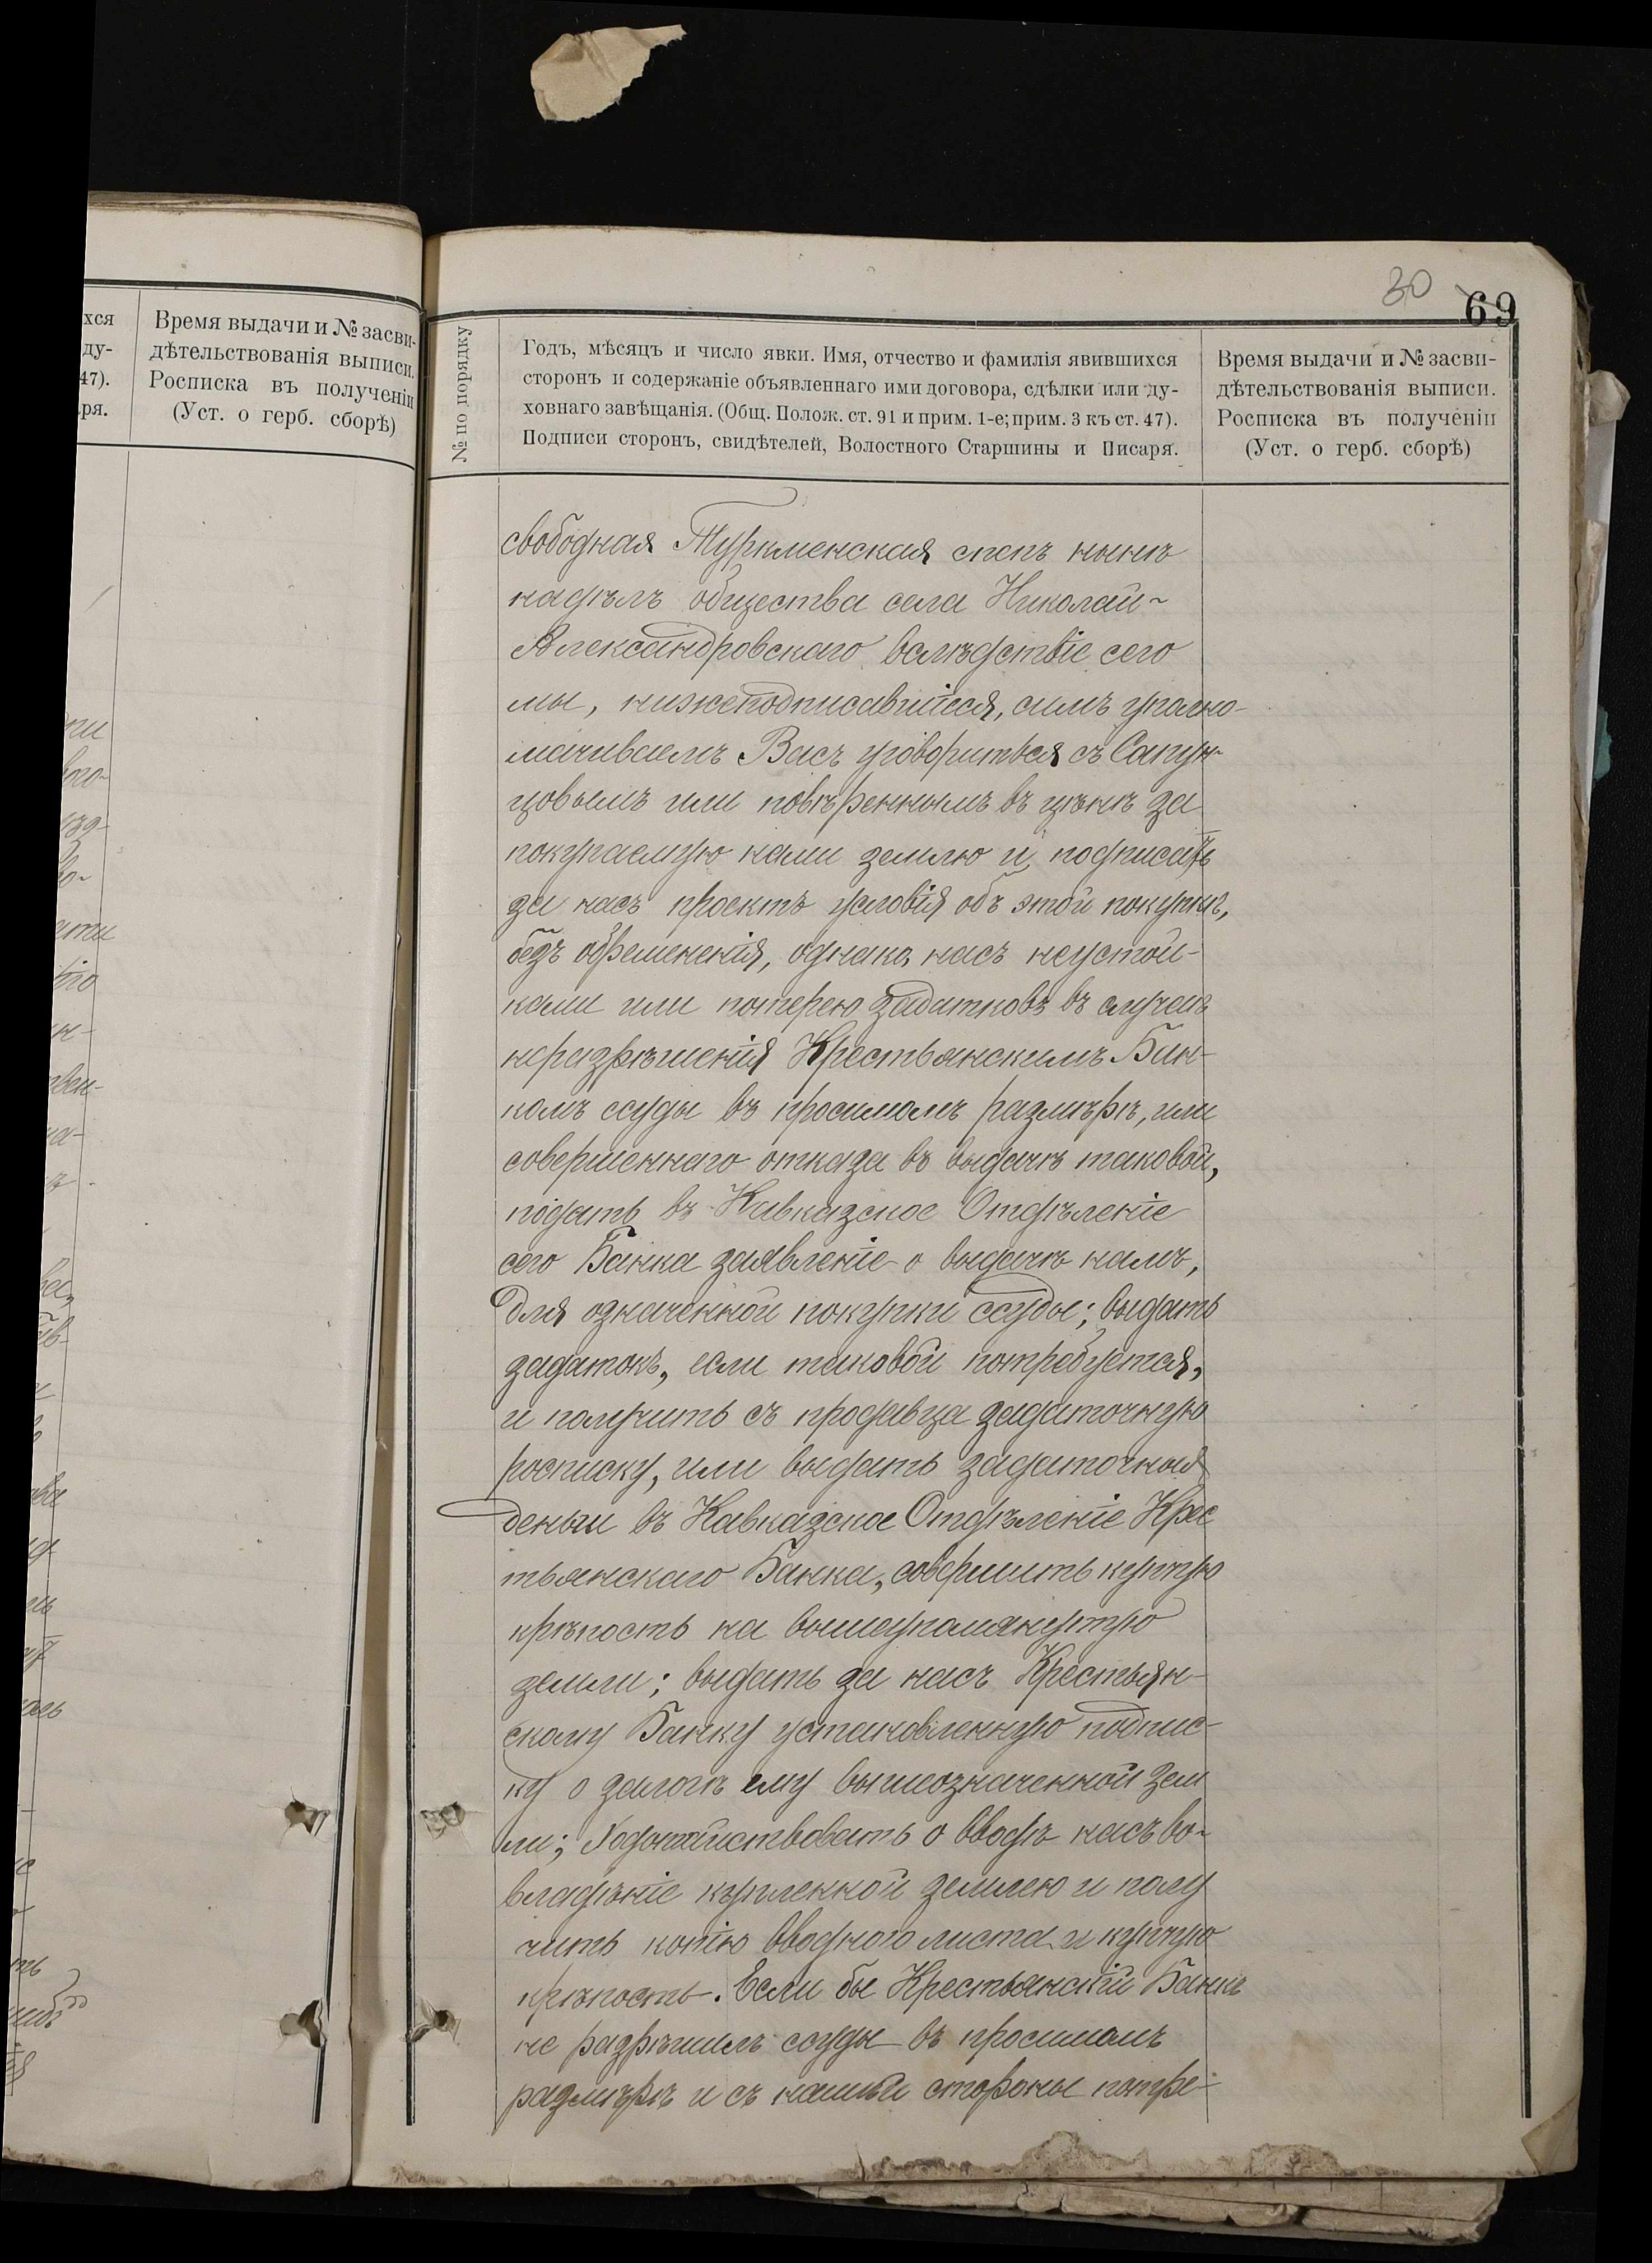 хся
ду-
47).
ря.
Время выдачи и № засви-
дѣтельствованія выписи.
Росписка въ полученіи
(Уст. о герб. сборѣ)
30
69
№ по порядку
Годъ, мѣсяцъ и число явки. Имя, отчество и фамилія явившихся
сторонъ и содержаніе объявленнаго ими договора, сдѣлки или ду-
ховнаго завѣщанія. (Общ. Полож. ст. 91 и прим. 1-е; прим. 3 къ ст. 47).
Подписи сторонъ, свидѣтелей, Волостного Старшины и Писаря.
Время выдачи и № засви-
дѣтельствованія выписи.
Росписка въ полученіи
(Уст. о герб. сборѣ)
свободная Туркменская степь нынѣ
надѣлъ общества села Николай-
Александровскаго вслѣдствіе сего
мы, нижеподписавшіеся, симъ уполно-
мачиваемъ Васъ уговориться съ Сапун-
цовымъ или повѣреннымъ въ цѣнѣ за
покупаемую нами землю и подписать
за насъ проектъ условія объ этой покупкѣ,
безъ обремененія, однако, насъ неустой-
ками или потерею задатковъ въ случаѣ
неразрѣшенія Крестьянскимъ Бан-
комъ ссуды въ просимомъ размѣрѣ, или
совершеннаго отказа въ выдачѣ таковой,
подать въ Кавказское Отдѣленіе
сего Банка заявленіе о выдачѣ намъ,
для означенной покупки ссуды; выдать
задатокъ, если таковой потребуется,
и получить съ продавца задаточную
росписку, или выдать задаточныя
деньги въ Кавказское Отдѣленіе Крес
тьянскаго Банка, совершить купчую
крѣпость на вышеупомянутую
земли; выдать за насъ Крестьян-
скому Банку установленную подпис-
ку о залогѣ ему вышеозначенной зем
ли; Ходотайствовать о вводѣ насъ во-
владѣніе купленной землею и полу
чить копію вводного листа и купчую
крѣпость. Если бы Крестьянскій Банкъ
не разрѣшилъ ссуды въ просимомъ
размѣрѣ и съ нашей стороны потре-